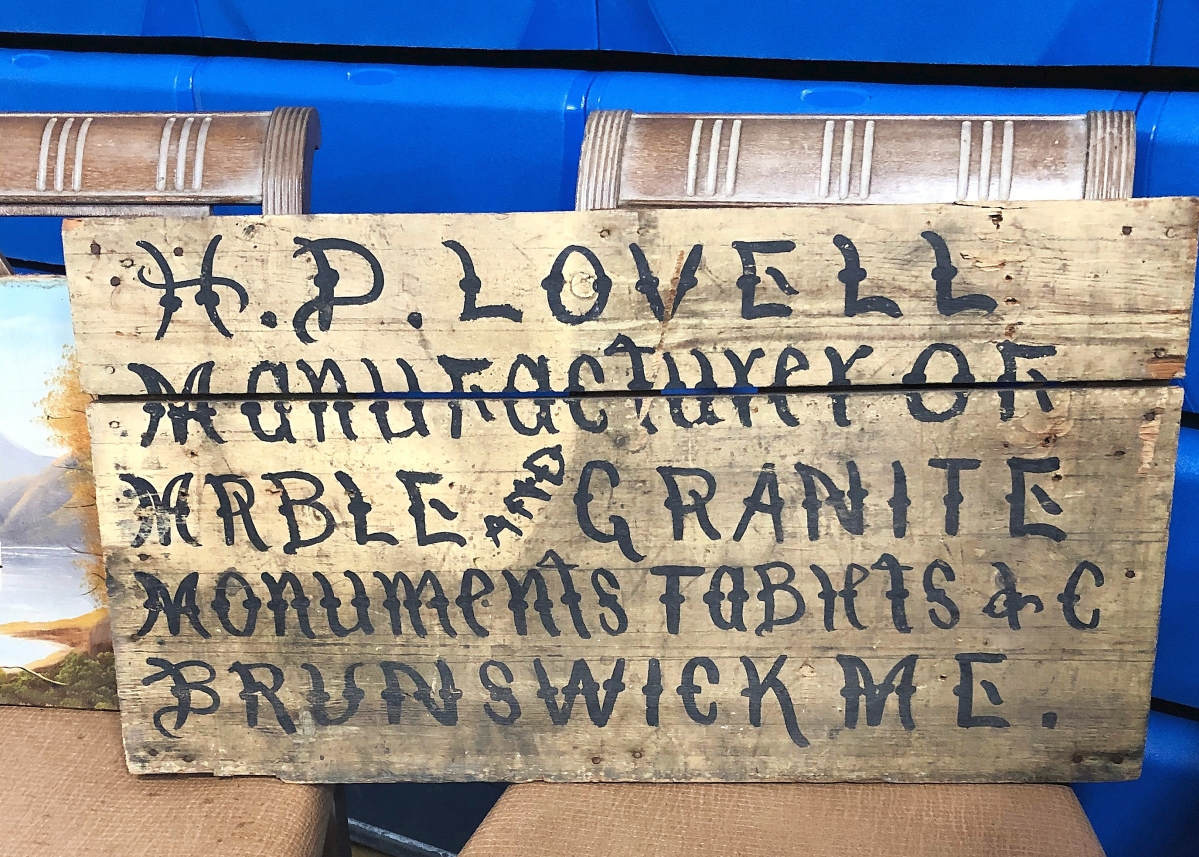 H. P. LOVELL
Manufacturer OF
MRBLE AND GRANITE
Monuments TaBlets & C
BRUNSWICK ME.